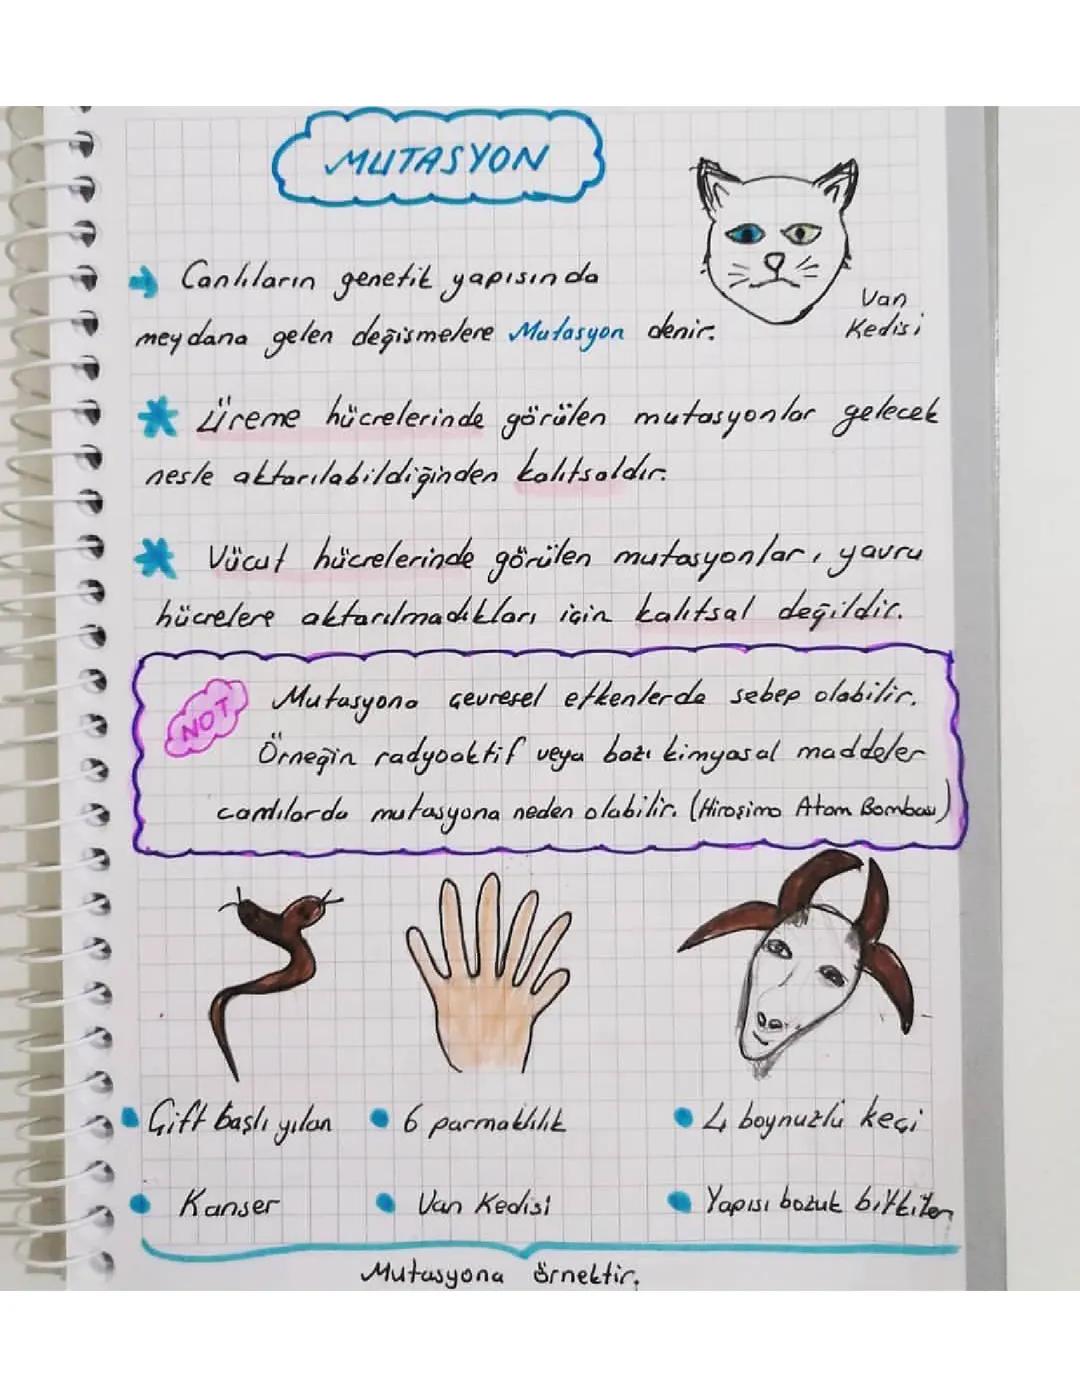 MUTASYON
Canlıların genetik yapısında
meydana gelen değişmelere Mutasyon denir.
Van
Kedisi
* Üreme hücrelerinde görülen mutasyonlar gelecek
nesle aktarılabildiğinden kalıtsaldır.
* Vücut hücrelerinde görülen mutasyonlar, yavru
hücrelere aktarılmadıkları için kalıtsal değildir.
NOT Mutasyona çevresel etkenlerde sebep olabilir.
Örneğin radyoaktif veya bazı kimyasal maddeler
canlılarda mutasyona neden olabilir. (Hiroşima Atom Bombası)
Çift başlı yılan
6 parmaklılık
4 boynuzlu keçi
Kanser
Van Kedisi
Yapısı bozuk bitkiler
Mutasyona örnektir.